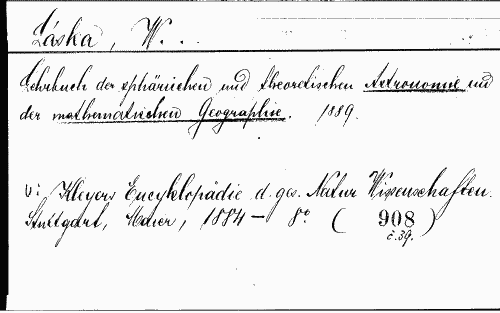 Láska, W. . .
Lehrbuch der sphärischen und theoretischen Astronomie und
der mathematischen Geographie. 1889.
v: Kleyers Encyklopädie d. ges. Natur Wissenschaften.
Stuttgart, Maier, 1884 – 8° ( 908 )
č. 39.